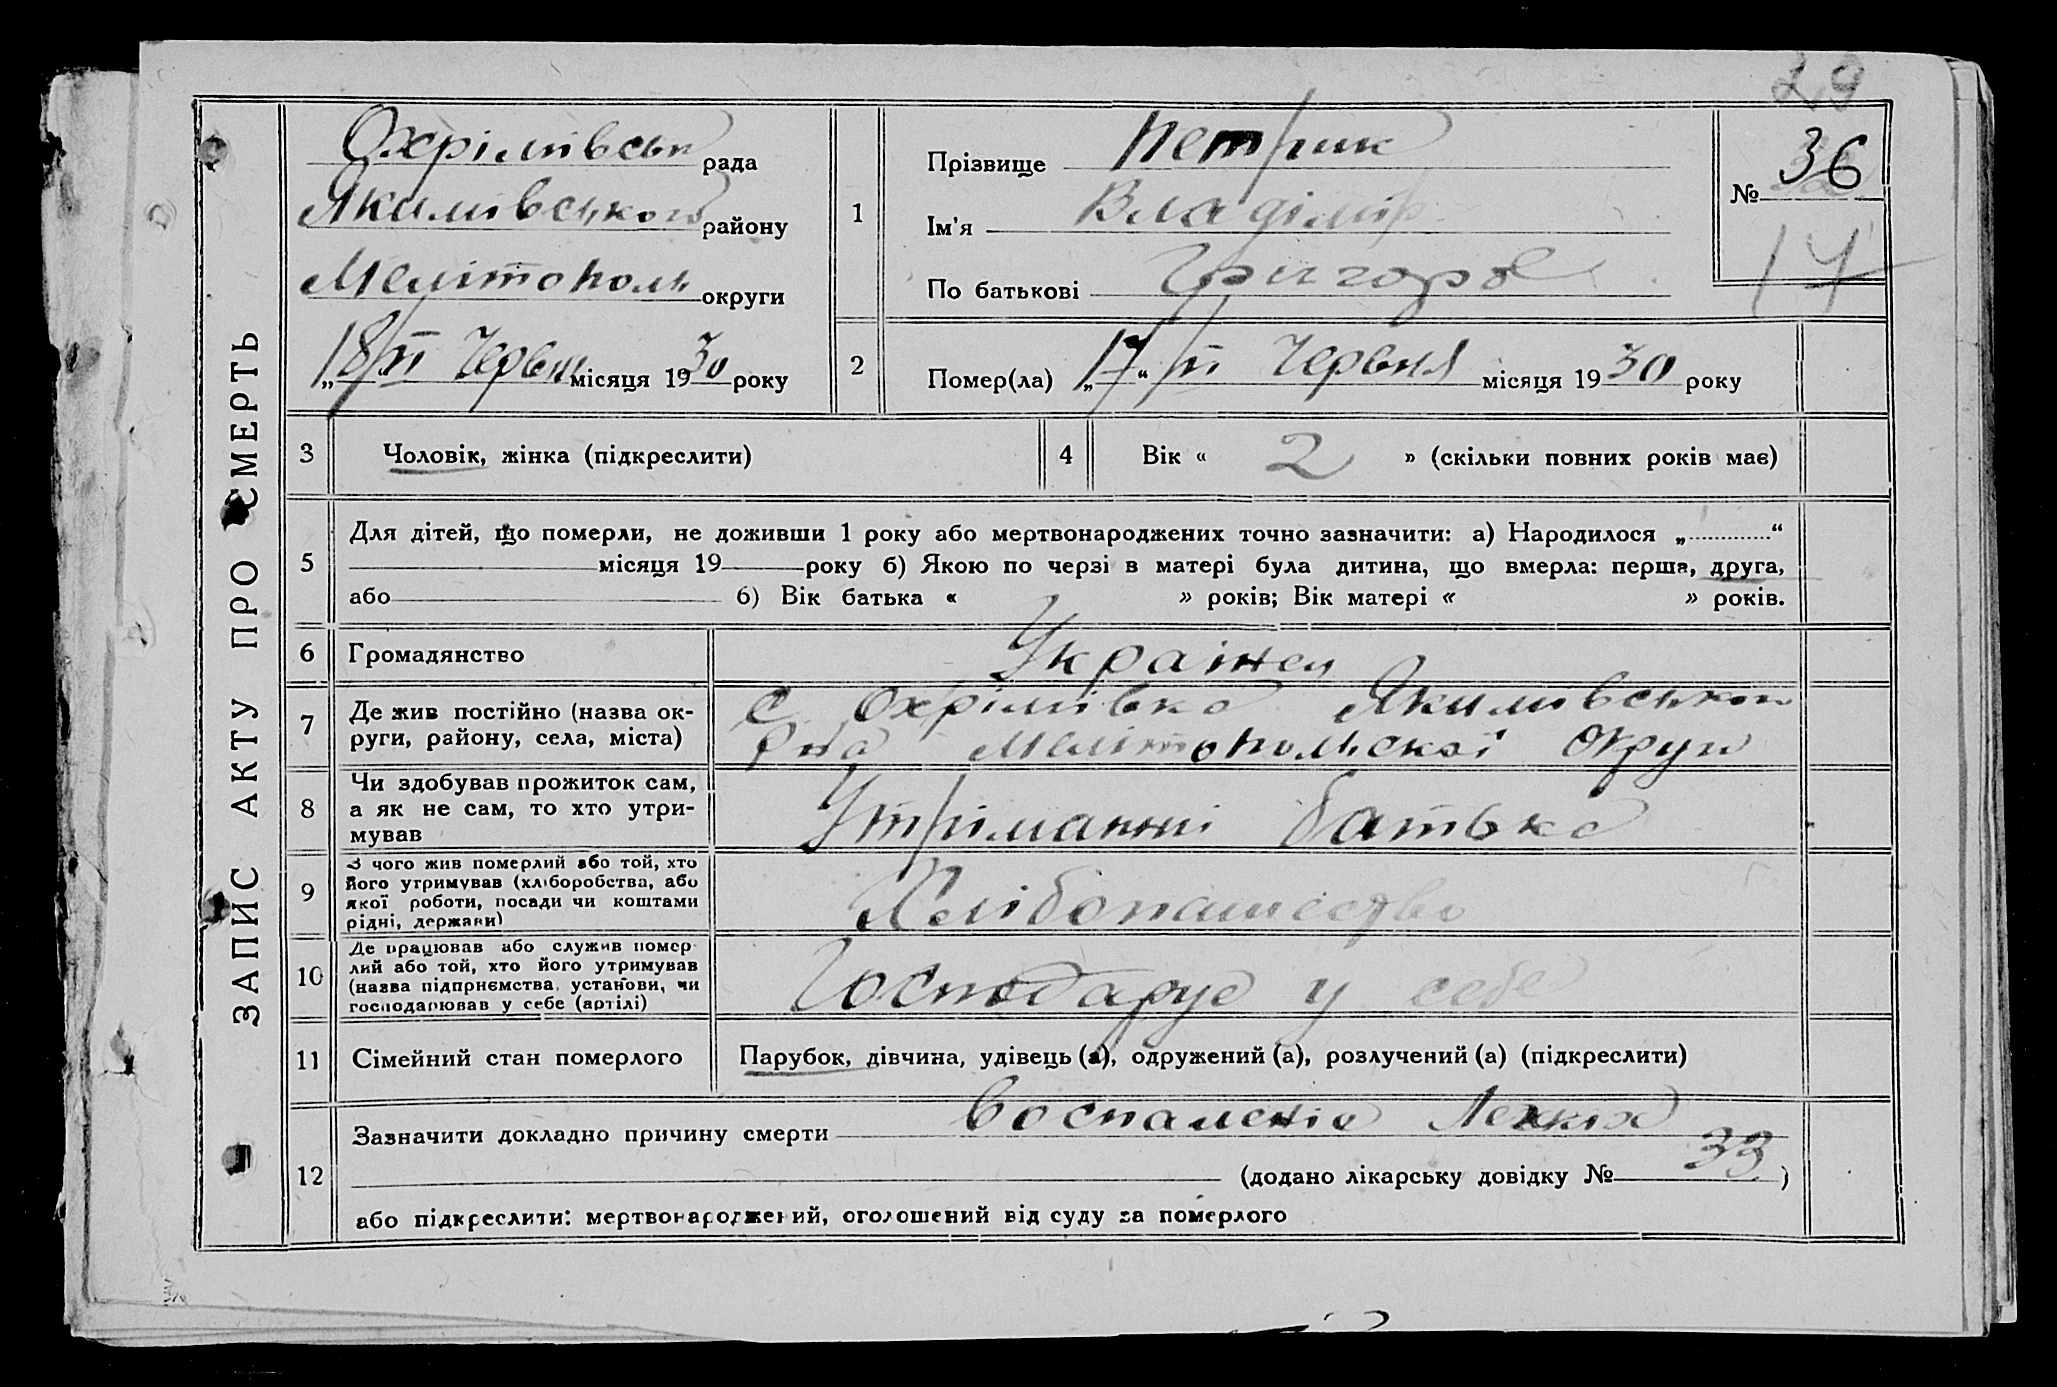 29
ЗАПИС АКТУ ПРО СМЕРТЬ
Охрімівськ рада
Якимівського району
Мелітополь округи
„18/VI Червня місяця 1930 року
1
Прізвище Петрик
Ім'я Владімір
По батькові Григоров
№ 36
14
2
Помер(ла) „17“/VI Червня місяця 1930 року
3
Чоловік, жінка (підкреслити)
4
Вік « 2 » (скільки повних років має)
5
Для дітей, що померли, не доживши 1 року або мертвонароджених точно зазначити: а) Народилося „............“
місяця 19 року б) Якою по черзі в матері була дитина, що вмерла: перша, друга,
або б) Вік батька « » років; Вік матері « » років.
6
Громадянство
Українец
7
Де жив постійно (назва ок-
руги, району, села, міста)
с Охрімівка Якимівськои
р на Мелітопольскоі Округи
8
Чи здобував прожиток сам,
а як не сам, то хто утри-
мував
Утріманні батька
9
З чого жив померлий або той, хто
його утримував (хліборобства, або
якої роботи, посади чи коштами
рідні, держави)
Хлібопашество
10
Де працював або служив помер-
лий або той, хто його утримував
(назва підприємства, установи, чи
господарював у себе (артілі)
Господарує у себе
11
Сімейний стан померлого
Парубок, дівчина, удівець (а), одружений (а), розлучений (а) (підкреслити)
12
Зазначити докладно причину смерти Воспаленіе Легких
(додано лікарську довідку № 33)
або підкреслити: мертвонароджений, оголошений від суду за померлого